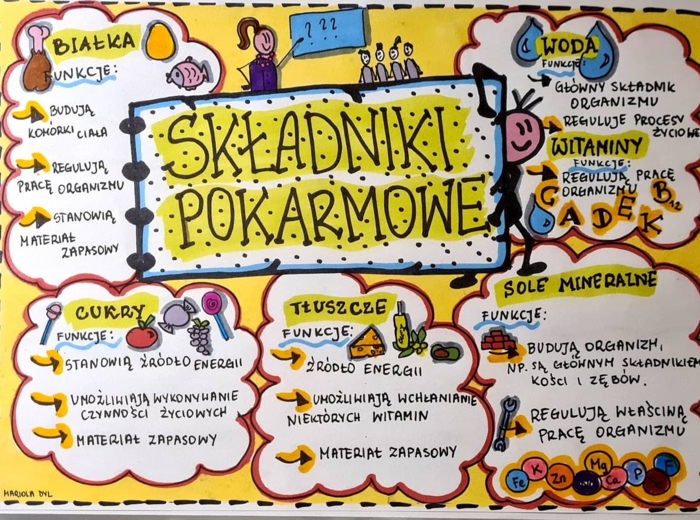 ? ? ?
SKŁADNIKI
POKARMOWE
BIAŁKA
FUNKCJE:
BUDUJĄ
KOMÓRKI CIAŁA
REGULUJĄ
PRACĘ ORGANIZMU
STANOWIĄ
MATERIAŁ
ZAPASOWY
WODA
FUNKCJE:
GŁÓWNY SKŁADNIK
ORGANIZMU
REGULUJE PROCESY
ŻYCIOWE
WITAMINY
FUNKCJE:
REGULUJĄ PRACĘ
ORGANIZMU
C A D E K B12
CUKRY
FUNKCJE:
STANOWIĄ ŹRÓDŁO ENERGII
UMOŻLIWIAJĄ WYKONYWANIE
CZYNNOŚCI ŻYCIOWYCH
MATERIAŁ ZAPASOWY
TŁUSZCZE
FUNKCJE:
ŹRÓDŁO ENERGII
UMOŻLIWIAJĄ WCHŁANIANIE
NIEKTÓRYCH WITAMIN
MATERIAŁ ZAPASOWY
SOLE MINERALNE
FUNKCJE:
BUDUJĄ ORGANIZM,
NP. SĄ GŁÓWNYM SKŁADNIKIEM
KOŚCI I ZĘBÓW.
REGULUJĄ WŁAŚCIWĄ
PRACĘ ORGANIZMU
Fe K Zn Mg Ca P F
MARIOLA DYL